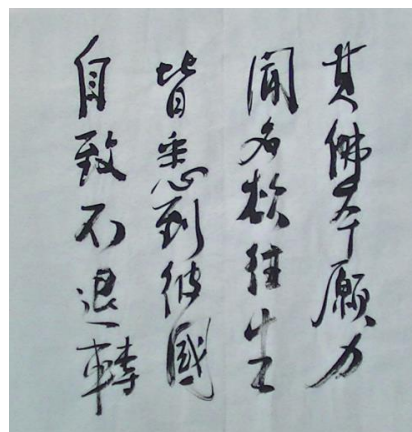 其佛本願力
聞名欲往生
皆悉到彼國
自致不退轉